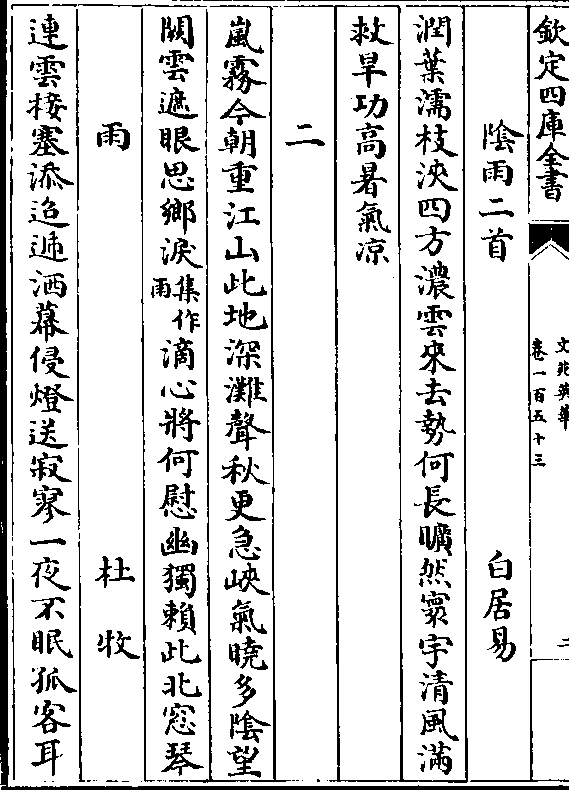 欽定四庫全書
文苑英華
卷一百五十三
二
陰雨二首
白居易
潤葉濡枝浹四方濃雲來去勢何長曠然寰宇清風滿
救旱功高暑氣凉
二
嵐霧今朝重江山此地深灘聲秋更急峽氣曉多陰望
闕雲遮眼思鄉淚集作雨滴心將何慰幽獨賴此北窓琴
雨
杜牧
連雲接塞添迢遞洒幕侵燈送寂寥一夜不眠孤客耳